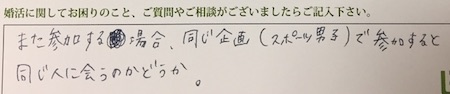 婚活に関してお困りのこと、ご質問やご相談がございましたらご記入下さい。
また参加する場合、同じ企画(スポーツ男子)で参加すると
同じ人に会うのかどうか。